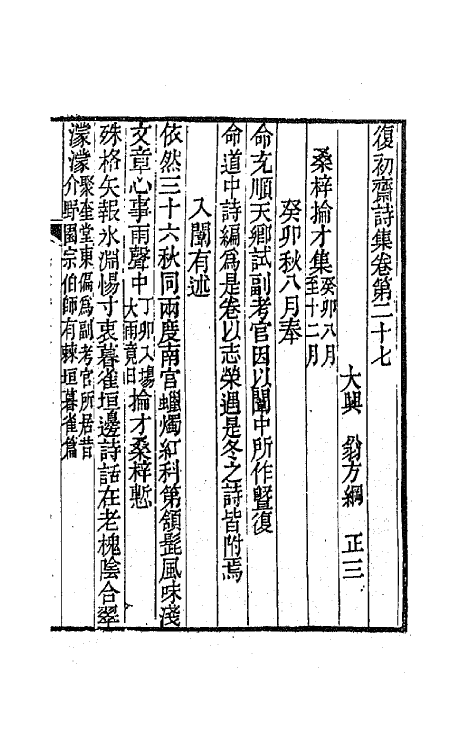 復初齋詩集卷第二十七
大興　翁方綱　正三
桑梓掄才集癸卯八月至十二月
癸卯秋八月奉
命充順天鄉試副考官因以闈中所作曁復
命道中詩編爲是卷以志榮遇是冬之詩皆附焉
入闈有述
依然三十六秋同兩度南官蠟燭紅科第頷髭風味淺
文章心事雨聲中丁卯入塲大雨竟日掄才桑梓慙
殊格矢報氷淵惕寸衷暮雀垣邊詩話在老槐陰合翠
濛濛聚奎堂東偏爲副考官所居昔介野園宗伯師有棘垣暮雀篇